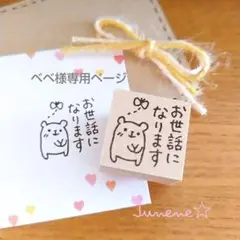 べべ様専用ページ
お世話に
なります
お世話に
なります
Junene☆